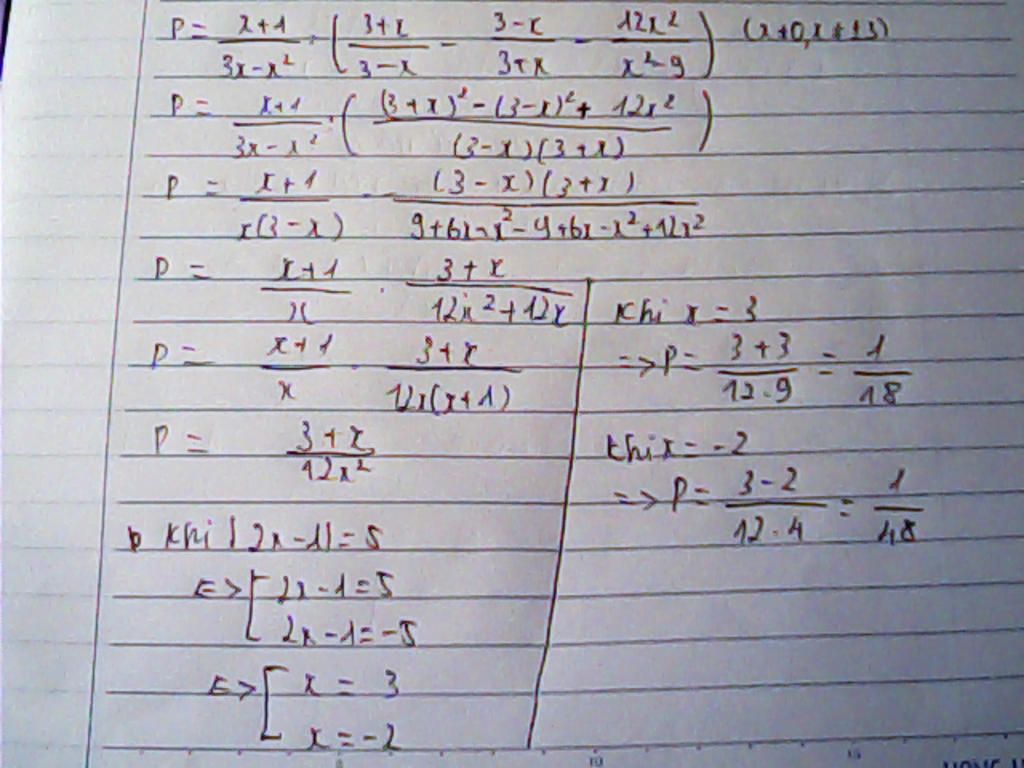 P = \frac{x+1}{3x-x²} : ( \frac{3+x}{3-x} - \frac{3-x}{3+x} - \frac{12x²}{x²-9} ) (x≠0, x≠±3)
P = \frac{x+1}{3x-x²} : ( \frac{(3+x)² - (3-x)² + 12x²}{(3-x)(3+x)} )
P = \frac{x+1}{x(3-x)} . \frac{(3-x)(3+x)}{9+6x+x²-9+6x-x²+12x²}
P = \frac{x+1}{x} . \frac{3+x}{12x²+12x}
P = \frac{x+1}{x} . \frac{3+x}{12x(x+1)}
P = \frac{3+x}{12x²}
b Khi |2x-1|=5
<=> [ 2x-1=5
2x-1=-5
<=> [ x = 3
x = -2
Khi x = 3
=> P = \frac{3+3}{12.9} = \frac{1}{18}
Khi x = -2
=> P = \frac{3-2}{12.4} = \frac{1}{48}
10